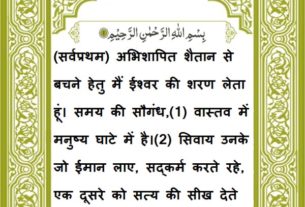 بِسْمِ اللهِ الرَّحْمٰنِ الرَّحِيْمِ
(सर्वप्रथम) अभिशापित शैतान से
बचने हेतु मैं ईश्वर की शरण लेता
हूं। समय की सौगंध,(1) वास्तव में
मनुष्य घाटे में है।(2) सिवाय उनके
जो ईमान लाए, सद्कर्म करते रहे,
एक दूसरे को सत्य की सीख देते